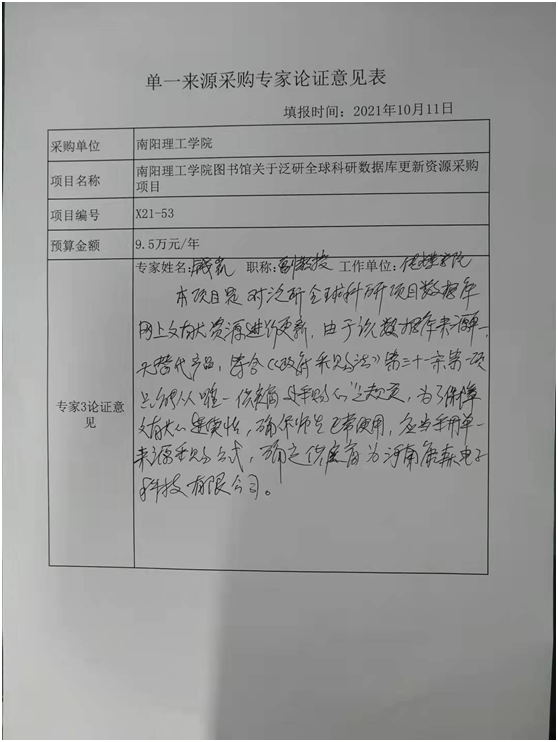 单一来源采购专家论证意见表
填报时间：2021年10月11日
采购单位 南阳理工学院
项目名称 南阳理工学院图书馆关于泛研全球科研数据库更新资源采购项目
项目编号 X21-53
预算金额 9.5万元/年
专家3论证意见
专家姓名： 职称：副教授 工作单位：传媒学院
本项目是对泛研全球科研项目数据库
网上文献资源进行更新，由于该数据库来源单一
无替代产品，符合《政府采购法》第三十一条第一项
只能从唯一供应商处采购的"之规定，为了保障
文献的连续性，确保师生正常使用，应当采用单一
来源采购方式，确定供应商为河南 森电子
科技有限公司。